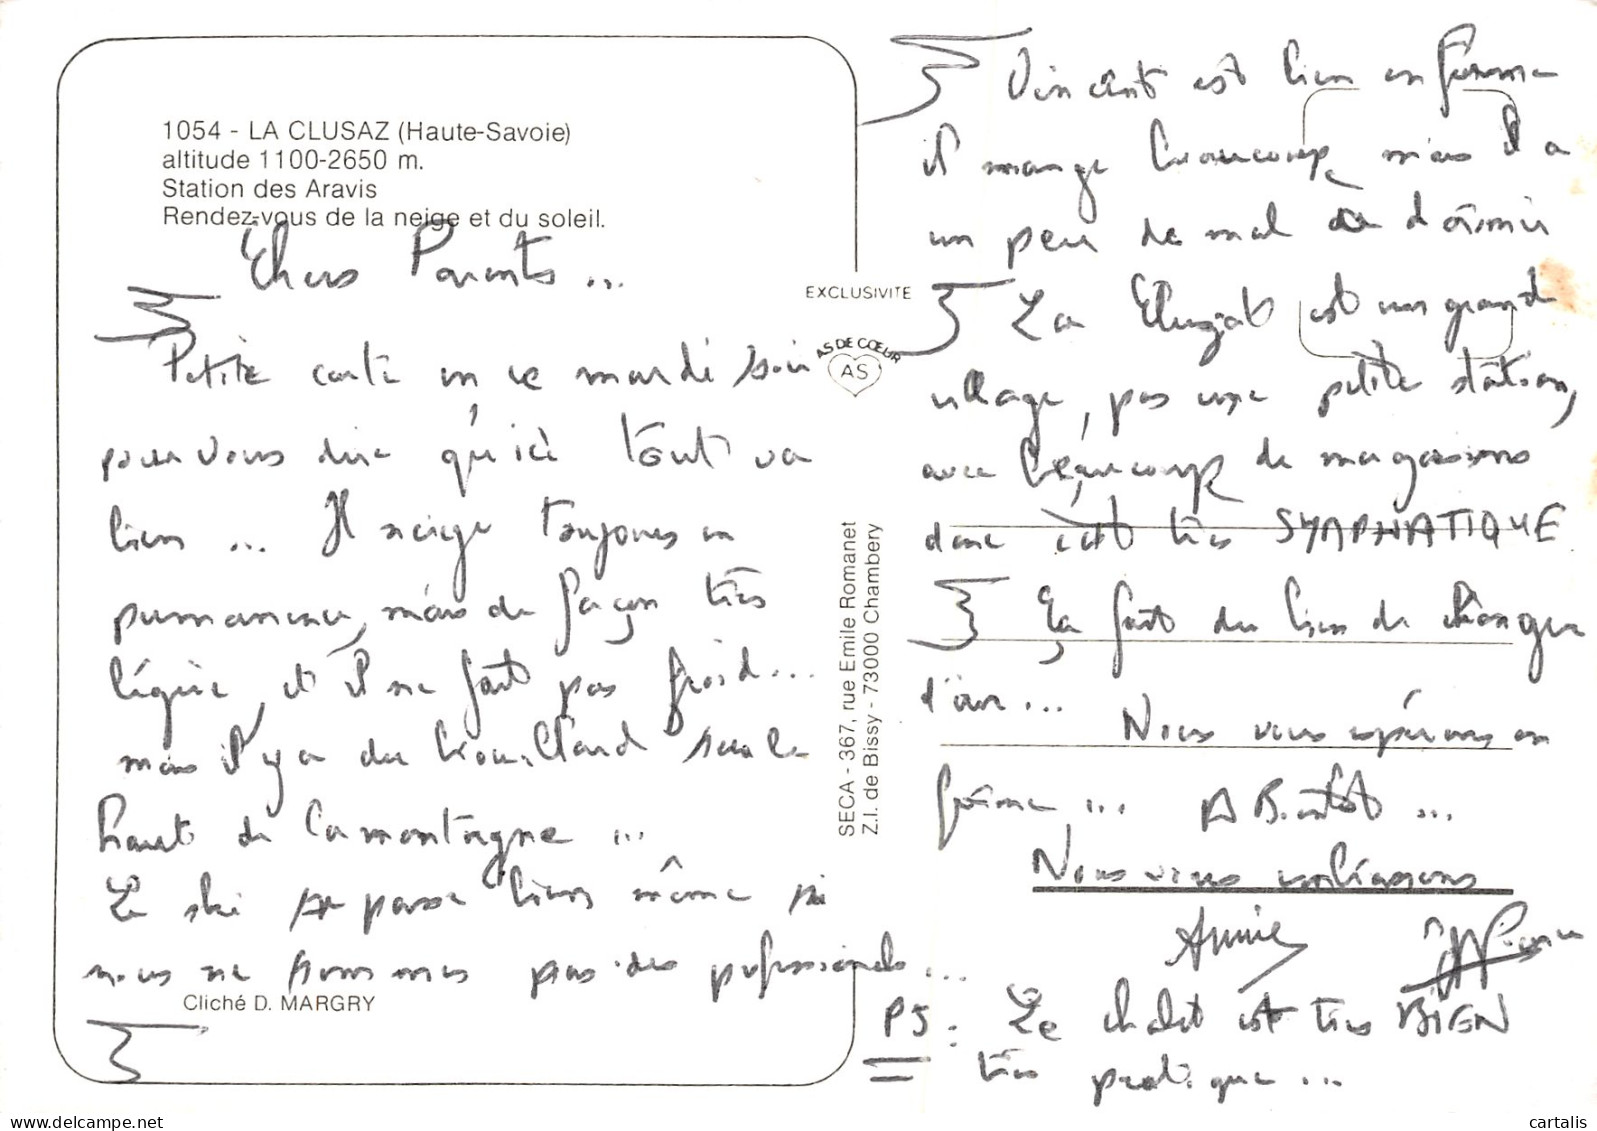 1054 - LA CLUSAZ (Haute-Savoie)
altitude 1100-2650 m.
Station des Aravis
Rendez-vous de la neige et du soleil.
Chers Parents...
Petite carte en ce mardi soir
pour vous dire qu'ici tout va
bien ... Il neige toujours en
permanence, mais de façon très
légère, et il ne fait pas froid...
mais il y a du brouillard sur le
haut de la montagne ...
Le ski se passe bien même si
nous ne sommes pas des professionels...
Cliché D. MARGRY
EXCLUSIVITE
AS DE CŒUR
AS
SECA - 367, rue Emile Romanet
Z.I. de Bissy - 73000 Chambery
Vincent est bien en forme
il mange beaucoup mais il a
un peu de mal à dormir
La Cluzat est un grand
village, pas une petite station,
avec beaucoup de magasins
donc c'est très SYMPHATIQUE
Ça fait du bien de changer
d'air...
Nous vous espérons en
forme ... A Bientôt ...
Nous vous embrassons
Annie
PS : Le chalet est très BIEN
très pratique...
cartalis